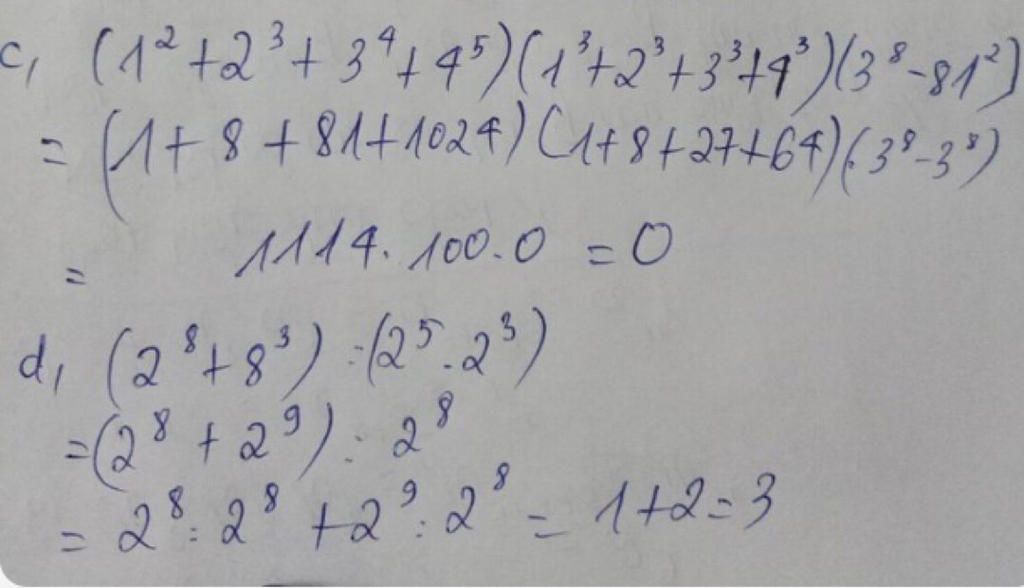 c, (1² + 2³ + 3⁴ + 4⁵)(1³+2³+3³+4³)(3⁸-81²)
= (1+8+81+1024)(1+8+27+64)(.3⁸-3⁸)
= 1114.100.0 = 0
d, (2⁸+8³):(2⁵.2³)
=(2⁸+2⁹):2⁸
= 2⁸:2⁸+2⁹:2⁸ = 1+2=3